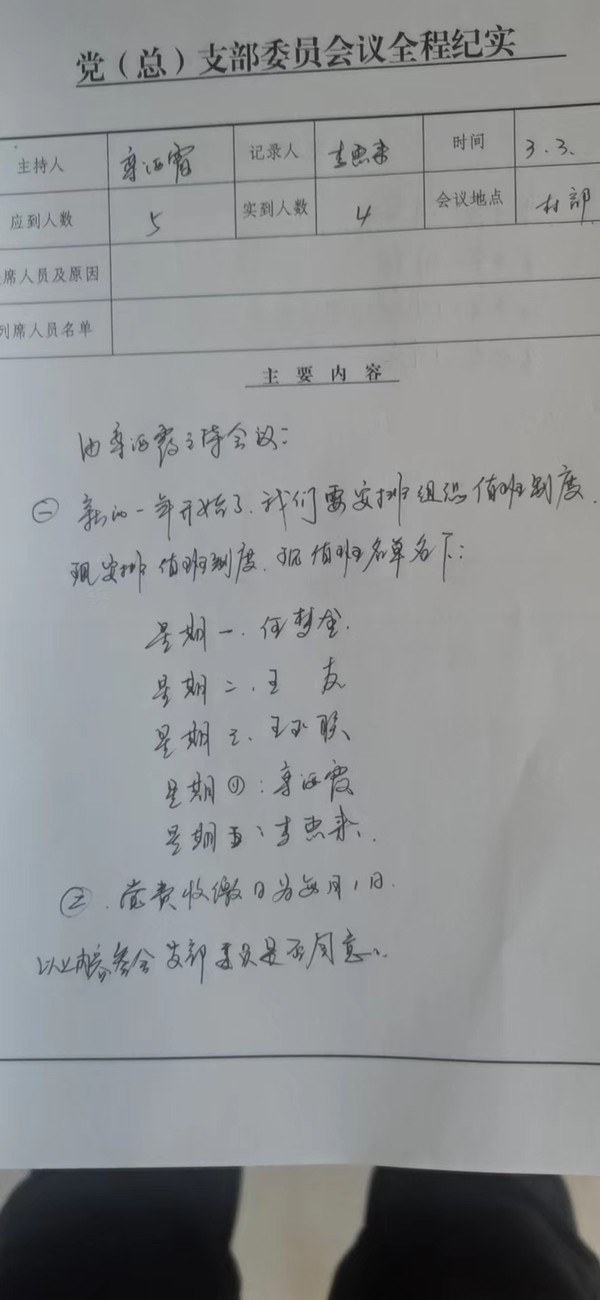 党（总）支部委员会议全程纪实
主持人 海霞 记录人 李忠来 时间 3.3.
应到人数 5 实到人数 4 会议地点 村部
席人员及原因
列席人员名单
主要内容
由 海霞主持会议：
㊀ 新的一年开始了.我们需安排组织值班制度.
现安排值班制度.现值班名单名下：
星期一.任梦全.
星期二.王 友
星期三.王玉联
星期四：海霞
星期五：李忠来.
②.党费收缴日为每月1日.
以上内容参会支部委员是否同意.